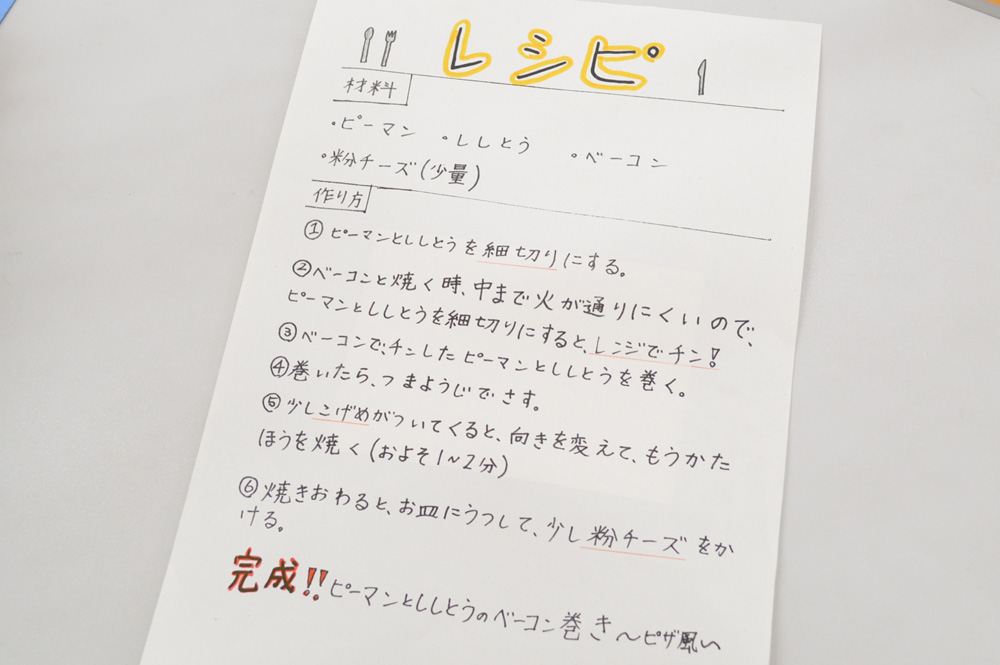 レシピ
材料
・ピーマン ・ししとう ・ベーコン
・粉チーズ(少量)
作り方
①ピーマンとししとうを細切りにする。
②ベーコンと焼く時、中まで火が通りにくいので、
ピーマンとししとうを細切りにすると、レンジでチン!
③ベーコンで、チンしたピーマンとししとうを巻く。
④巻いたら、つまようじでさす。
⑤少しこげめがついてくると、向きを変えて、もうかた
ほうを焼く(およそ1~2分)
⑥焼きおわると、お皿にうつして、少し粉チーズをか
ける。
完成!!ピーマンとししとうのベーコン巻き~ピザ風~